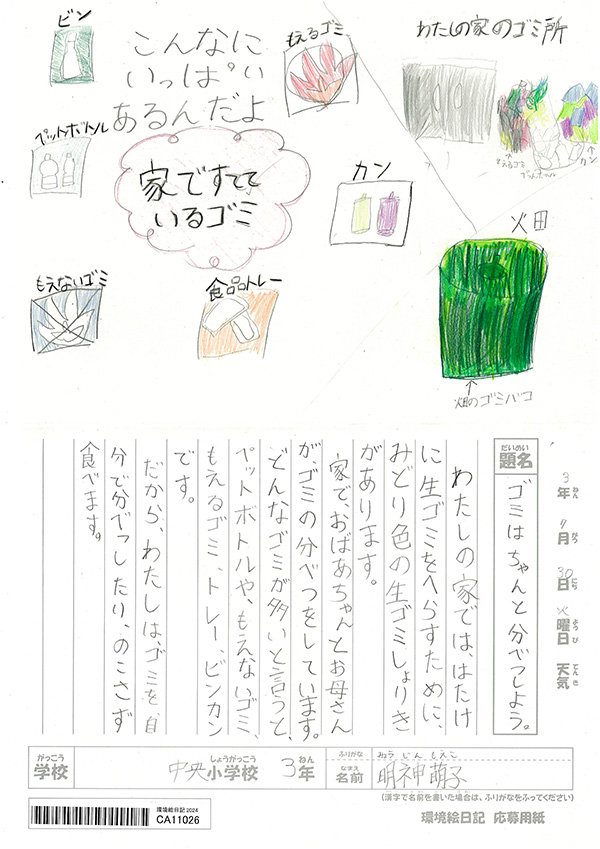 ビン
こんなに
いっぱい
あるんだよ
もえるゴミ
わたしの家のゴミ所
ペットボトル
家ですてて
いるゴミ
カン
もえるゴミ
ペットボトル
カン
火田
もえないゴミ
食品トレー
畑のゴミバコ
3年 月 30日 火曜日 天気
ねん がつ にち ようび てんき
だいめい
題名
ゴミはちゃんと分べつしよう。
わたしの家では、はたけ
に生ゴミをへらすために、
みどり色の生ゴミしょりき
があります。
家で、おばあちゃんとお母さん
が、ゴミの分べつをしています。
どんなゴミが多いと言うと、
ペットボトルや、もえないゴミ、
もえるゴミ、トレー、ビンカン
です。
だから、わたしは、ゴミを自
分で分べつしたり、のこさず
食べます。
がっこう
学校
中央
しょうがっこう
小学校
3
ねん
年
ふりがな
みょうじん もえこ
なまえ
名前
明神萌子
(漢字で名前を書いた場合は、ふりがなをふってください)
環境絵日記 2024
CA11026
環境絵日記 応募用紙